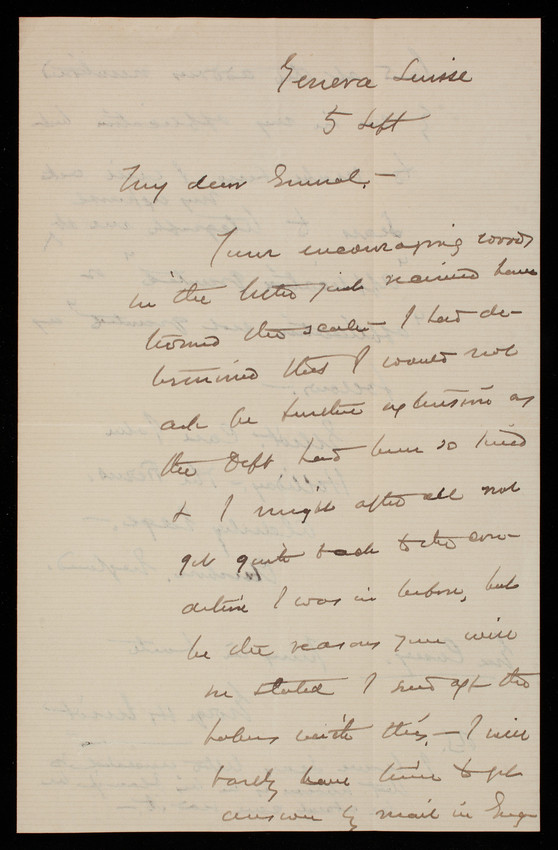 Geneva Suisse
5 Sept
My dear General,—
Your encouraging words
in the letter just received have
turned the scale— I had de-
termined that I would not
ask for further extension as
the Dept had been so kind
& I might after all not
get quite back to the con-
dition I was in before, but
for the reasons you will
see stated I send off the
papers with this,— I will
hardly have time to get
answer by mail in Eng-